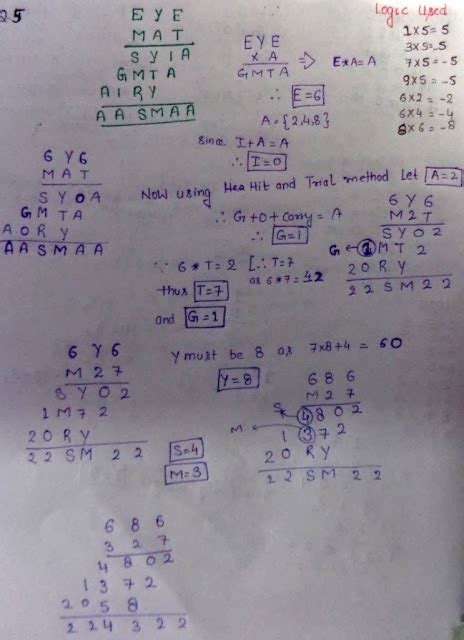 25
E Y E
M A T
S Y I A
G M T A
A I R Y
A A S M A A
E Y E
x A
G M T A
=> E*A=A
∴ E=6
A={2,4,8}
Logic Used
1x5=5
3x5=-5
7x5=-5
9x5=-5
6x2=-2
6x4=-4
8x6=-8
since I+A=A
∴ I=0
6 Y 6
M A T
S Y 0 A
G M T A
A 0 R Y
A A S M A A
Now using Hit and Trial method Let A=2
∴ G+0+carry=A
∴ G=1
∵ 6*T=2 [∴ T=7
as 6*7=42
thus T=7
and G=1
6 Y 6
M 2 T
S Y 0 2
G ← 1 M T 2
2 0 R Y
2 2 S M 2 2
6 Y 6
M 2 7
S Y 0 2
1 M 7 2
2 0 R Y
2 2 S M 2 2
Y must be 8 as 7x8+4=60
Y=8
S=4
M=3
6 8 6
M 2 7
S 4 8 0 2
M 1 3 7 2
2 0 R Y
2 2 S M 2 2
6 8 6
3 2 7
4 8 0 2
1 3 7 2
2 0 5 8
2 2 4 3 2 2